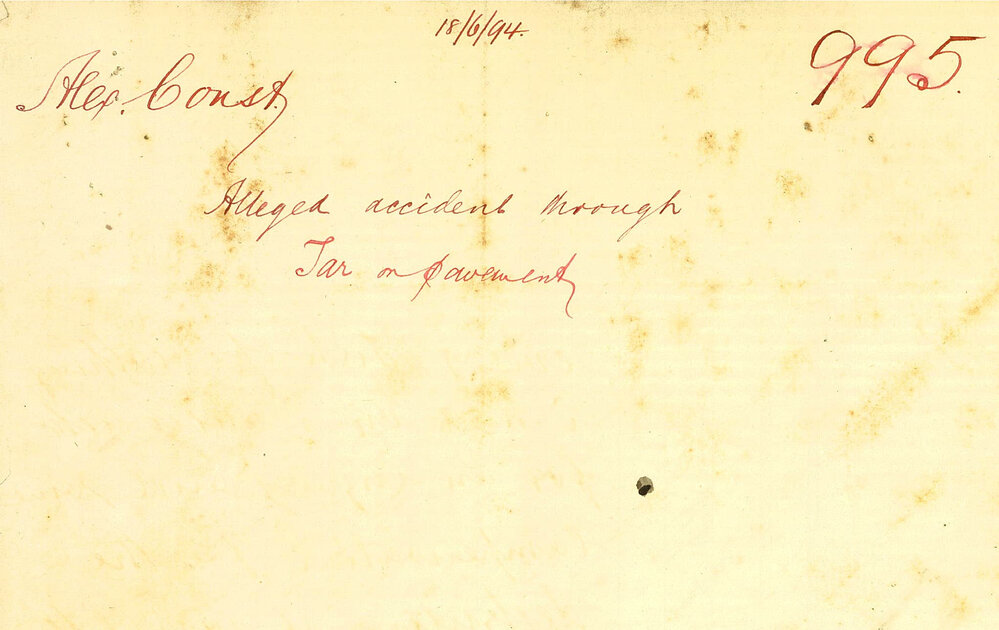 18/6/94.
995.
Alex. Const.
Alleged accident through
Tar on pavement